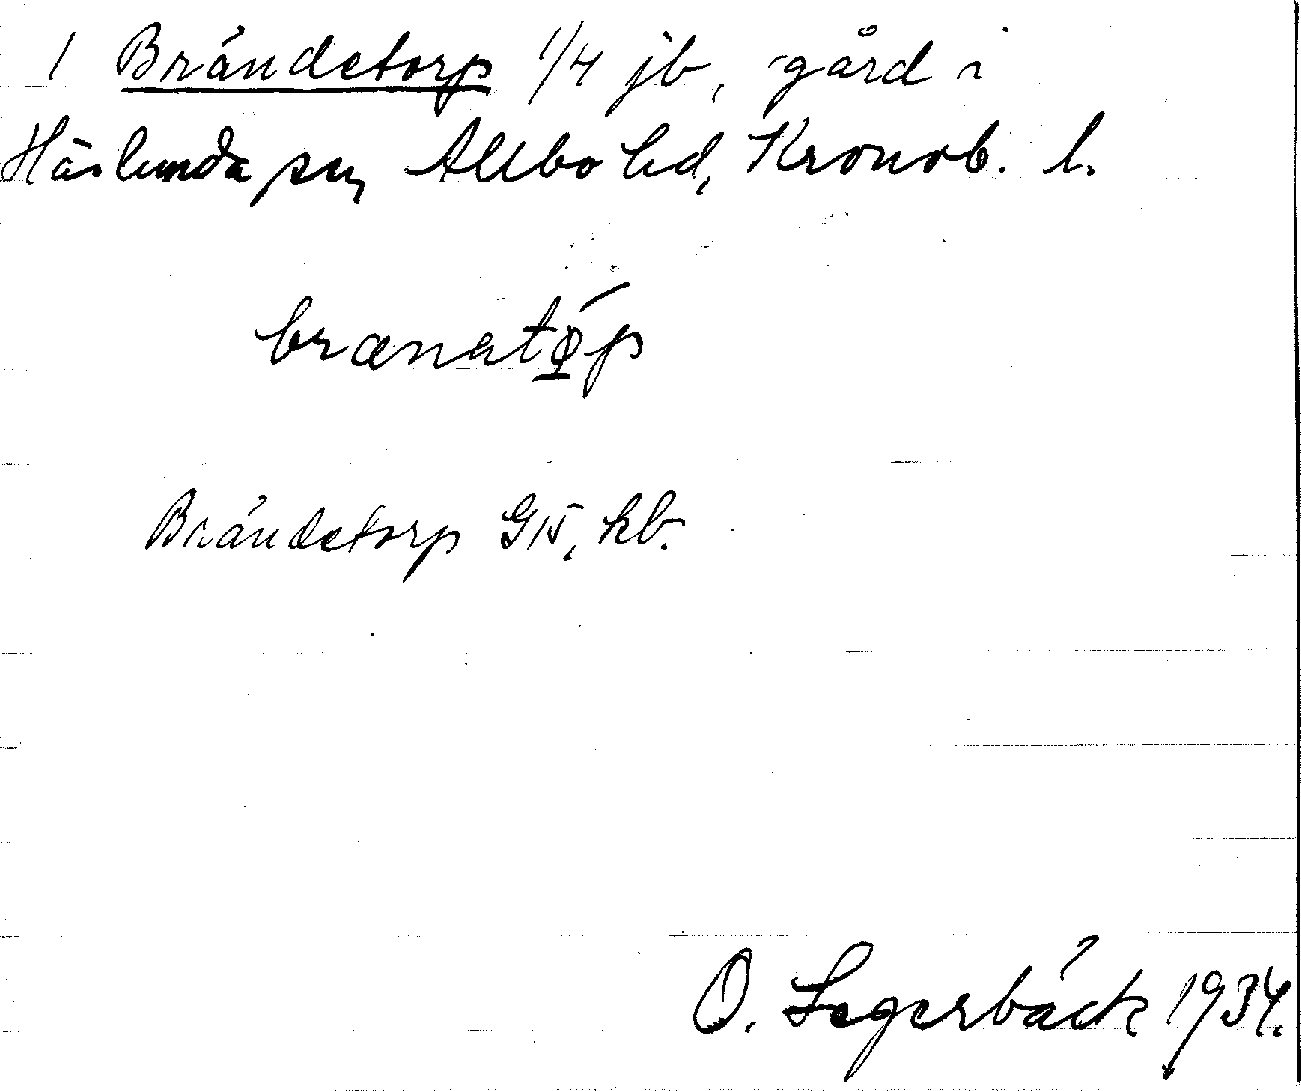 1 Brändetorp 1/4 jb, gård i
Härlunda sn, Allbo hd, Kronob. l.
brænatǿp
Brändetorp G15, kb.
O. Segerbäck 1934.